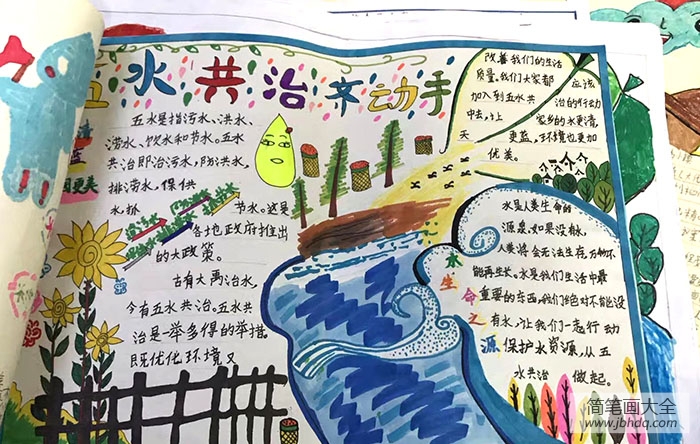 五水共治齐动手
五水是指污水、洪水、
涝水、饮水和节水。五水
共治即治污水，防洪水，
排涝水，保供
水抓 节水。这是
各地政府推出
的大政策。
古有大禹治水，
今有五水共治。五水共
治是一举多得的举措，
既优化环境又
国更美
改善我们的生活
质量，我们大家都 应该
加入到五水共 治的行动
中去，让 家乡的水更清，
天 更蓝，环境也更加
优美。
水生命之源
水是人类生命的
源泉，如果没水，
人类将会无法生存，万物不
能再生长。水是我们生活中最
重要的东西，我们绝对不能没
有水，让我们一起行动
保护水资源，从五
水共治 做起。
简笔画大全
www.jbhdq.com